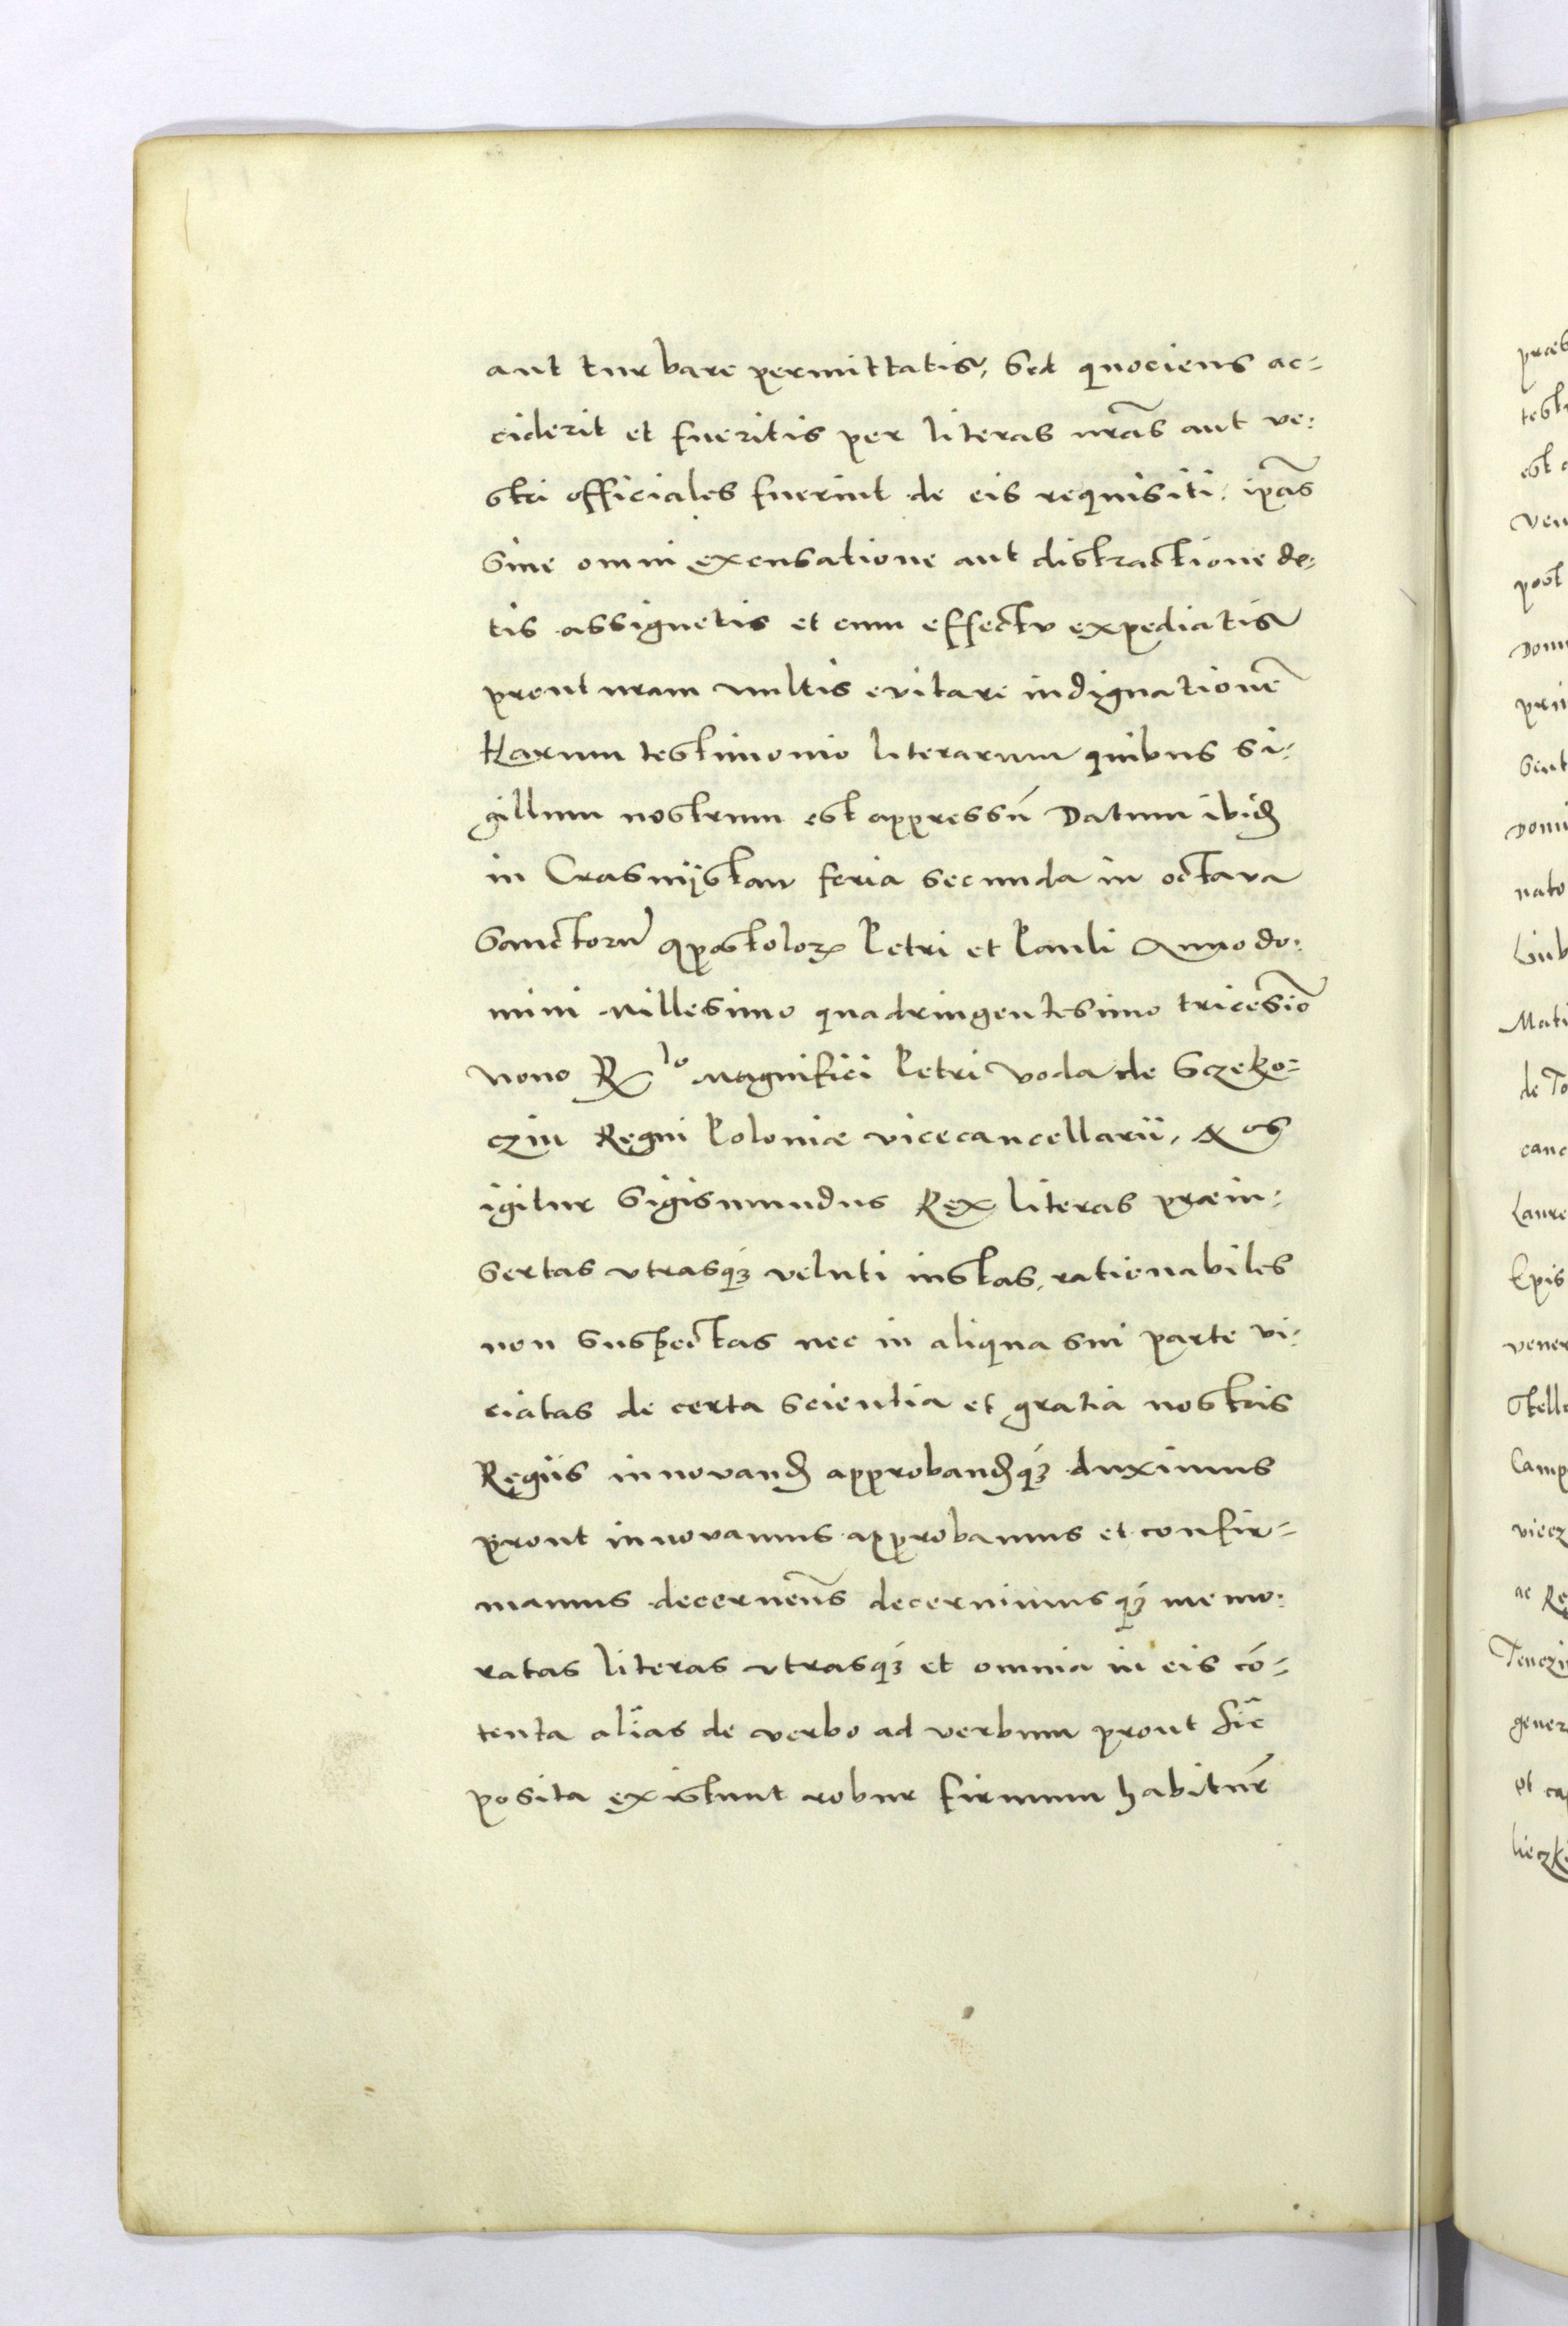 aut turbare permittatis, Sed quociens ac-
ciderit et fueritis per literas nrãs aut ve-
stri officiales fuerint de eis requisiti, ipãs
sine omni excusatione aut distractione de-
tis assignetis et cum effectu expediatis
prout nram vultis evitare indignationẽ
Harum testimonio literarum quibus si-
gillum nostrum est appressũ Datum ibid
in Crasnijstaw feria secunda in octava
Sanctorũ Apostoloꝝ Petri et Pauli Anno do-
mini millesimo quadringentesimo tricesiõ
nono Rlo Magnifici Petri voda de Sczeko-
czin Regni Poloniæ vicecancellarii, Nos
igitur Sigismundus Rex literas præin-
sertas vtrasqꝫ veluti iustas, rationabiles
non suspectas nec in aliqua sui parte vi-
ciatas de certa scientia et gratia nostris
Regiis innovand approbandqꝫ duximus
prout innovamus approbamus et confir-
mamus decerneñs decernimusqꝫ memo-
ratas literas vtrasqꝫ et omnia in eis cõ-
tenta alĩas de verbo ad verbum prout sĩc
posita existunt robur firmum habitur̃